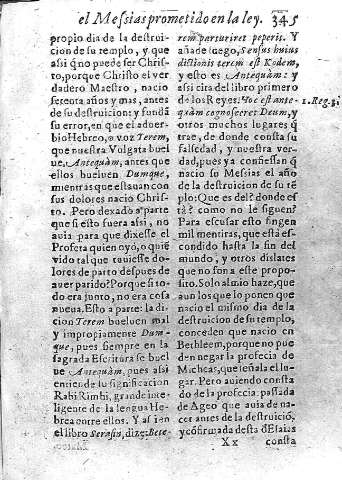 el Messias prometido en la ley. 345
propio dia de la destruicion
de su templo, y que
assi q̃ no puede ser Christo,
porque Christo el verdadero
Maestro, nacio
setenta años y mas, antes
de su destruicion: y fundã
su error, en que el aduerbio
Hebreo, o voz Terem,
que nuestra Vulgata buelue,
Antequàm, antes que
ellos bueluen Dumque,
mientras que estauan con
sus dolores nacio Christo.
Pero dexado a parte
que si esto fuera assi, no
auia para que dixesse el
Profeta quien oyò, o quiẽ
vido tal que tuuiesse dolores
de parto despues de
auer parido? Porque si todo
era junto, no era cosa
nueua. Esto a parte: la dicion
Terem bueluen mal
y impropiamente Dumque,
pues siempre en la
sagrada Escritura se buelue
Antequàm, pues assi
entiende lu significacion
Rabi Rimhi, grande inteligente
de la lengua Hebrea
entre ellos. Y assi en
el libro Serasin, dize: Beterem
parturiret peperit. Y
añade luego, Sensus huius
dictionis terem est Kodem,
y esto es Antequàm: y
assi cita del libro primero
de los Reyes: Hoc est antequàm
cognosceret Deum, y
1. Reg. 3.
otros muchos lugares q̃
trae, de donde consta su
falsedad, y nuestra verdad,
pues ya confiessan q̃
nacio su Messias el año
de la destruicion de su tẽplo:
Que es del? donde està?
como no le siguen?
Para escusar esto fingen
mil mentiras, que està escondido
hasta la fin del
mundo, y otros dislates
que no son a este proposito.
Solo al mio haze, que
aun los que lo ponen que
nacio el mismo dia de la
destruicion de su templo,
conceden que nacio en
Bethleem, porque no pueden
negar la profecia de
Micheas, que señala el lugar.
Pero auiendo constado
de la profecia passada
de Ageo que auia de nacer
antes de la destruiciõ,
y cõfirmada desta d Esaias
Xx consta